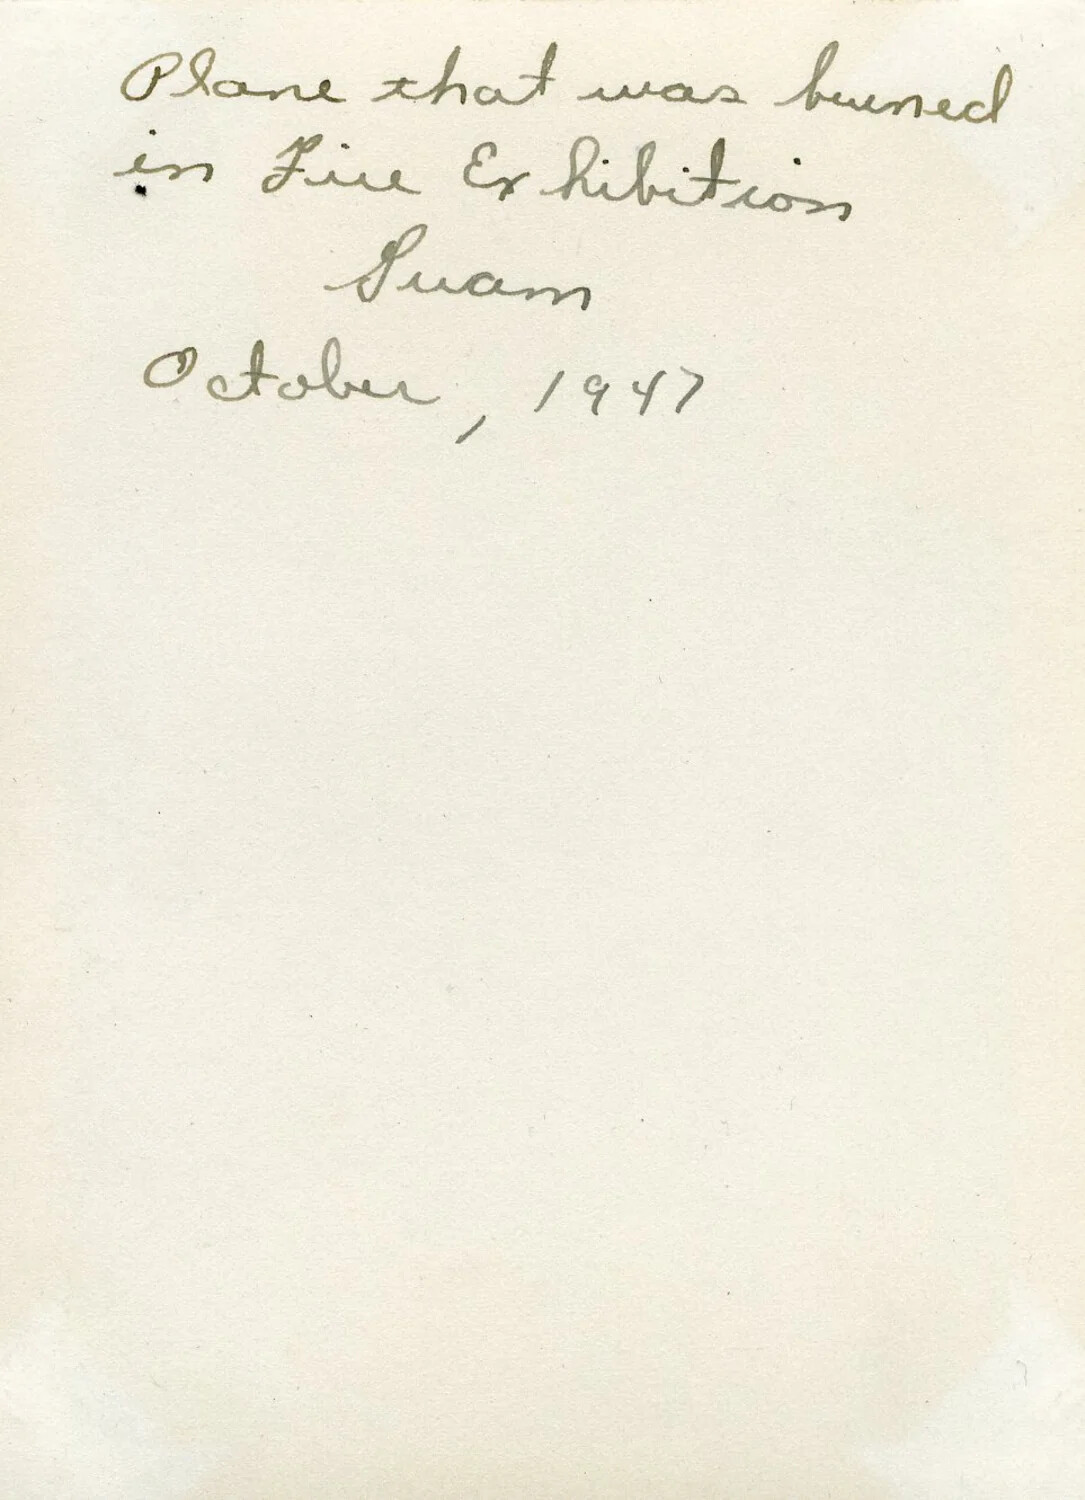 Plane that was burned
in Fire Exhibition
Guam
October, 1947